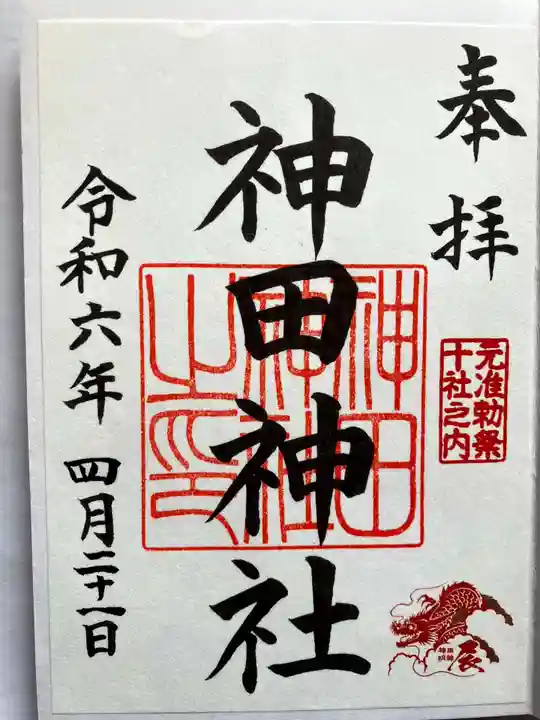 奉拝
元准勅祭
十社之内
神田神社
神田
神社
之印
令和六年 四月二十一日
辰